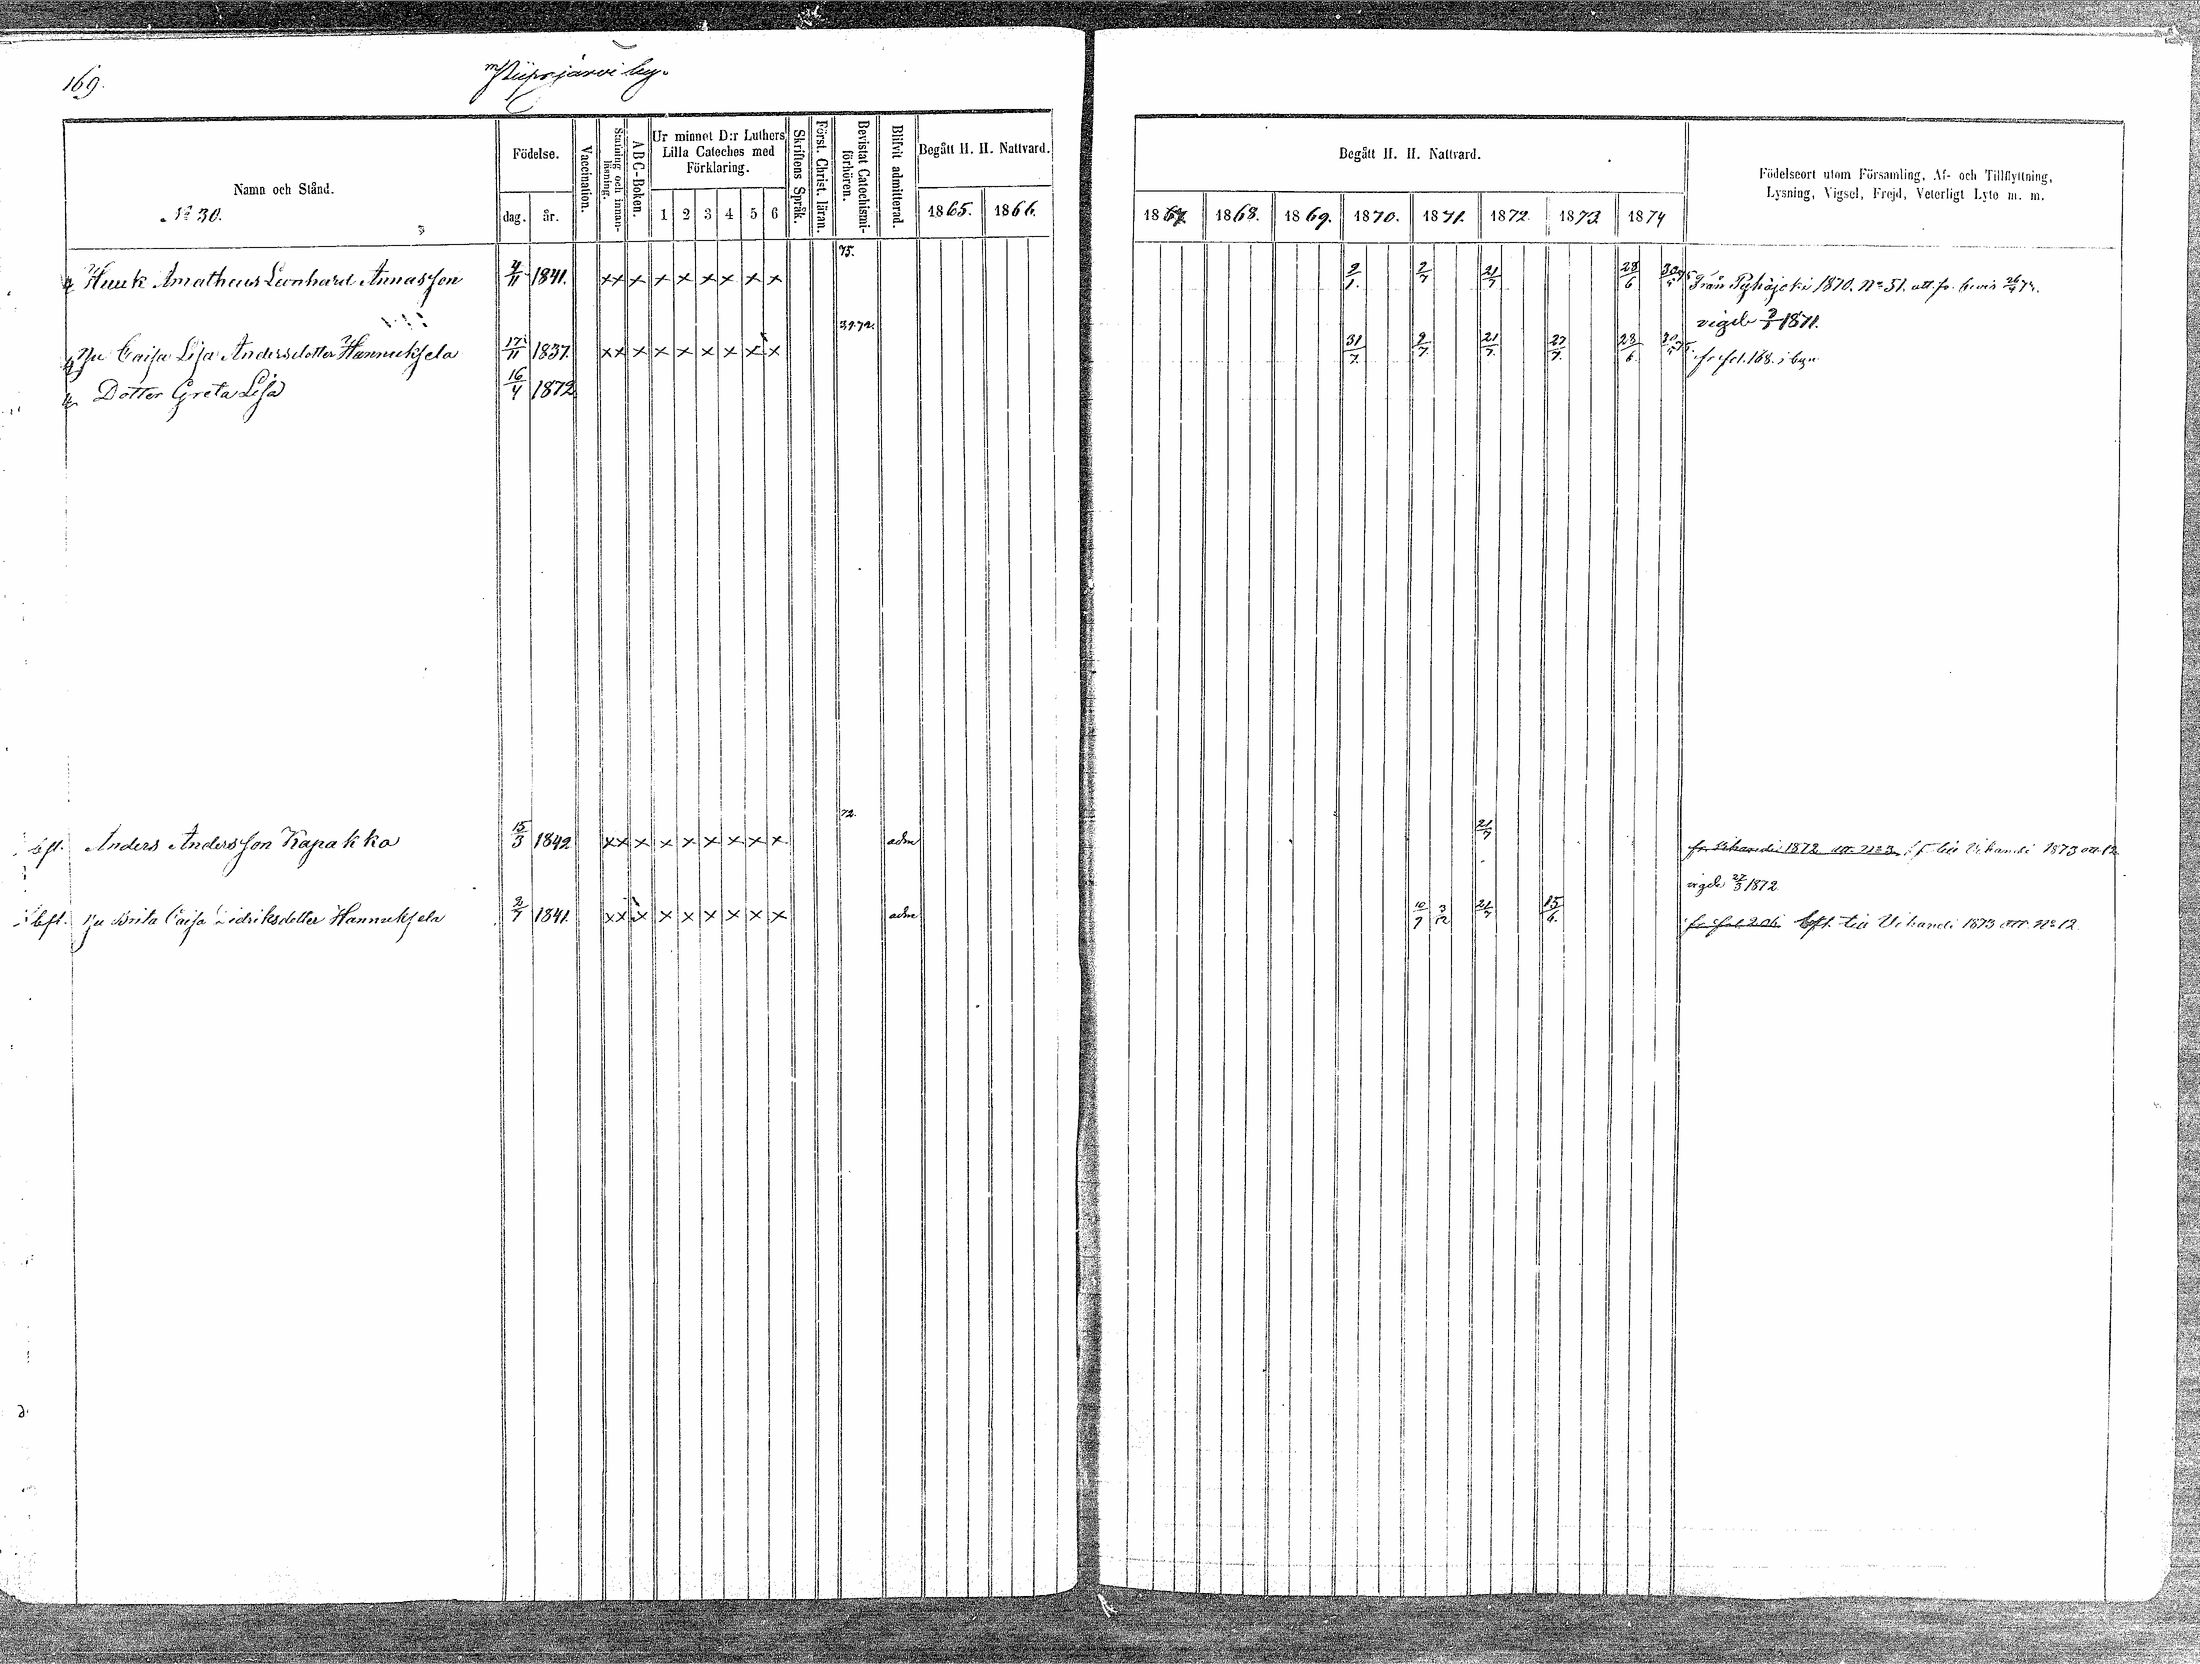 169.
Piipsjärvi by.
Namn och Stånd.
No 30.
Födelse.
dag. år.
Vaccination.
Stafning och innan-läsning.
A B C-Boken.
Ur minnet D:r Luthers
Lilla Cateches med
Förklaring.
1 2 3 4 5 6
Skriftens Språk.
Först. Christ. läran.
Bevistat Catechismi-förhören.
Blifvit admitterad.
Begått H. H. Nattvard.
1865. 1866.
Begått H. H. Nattvard.
1867. 1868. 1869. 1870. 1871. 1872. 1873. 1874
Födelseort utom Församling, Af- och Tillflyttning,
Lysning, Vigsel, Frejd, Veterligt Lyte m. m.
75.
Amatheus Leonhard Annasson 4/11 1841. x x x x x x x x x 2/7 21/7 28/6 Från Pyhäjoki 1870. No 51.
vigde 1871.
Caisa Lisa Andersdotter Hannuksela 17/11 1837. x x x x x x x x x 31/7. 2/7. 21/7. 27/7. 28/6. fr fol. 168. i byn
Dotter Greta Lisa 16/4 1872
72.
Anders Andersson Kapakka 15/3 1842 x x x x x x x x x adm 21/7 fr. Vihandi 1872 att. No 3. till Vihandi 1873 att. 12
vigde 1872
bfl. Hu Brita Caisa Hannuksela 2/7 1841. x x x x x x x x x adm 10/7 3/12 21/7 15/6. bfl. till Vihandi 1873 att. No 12.